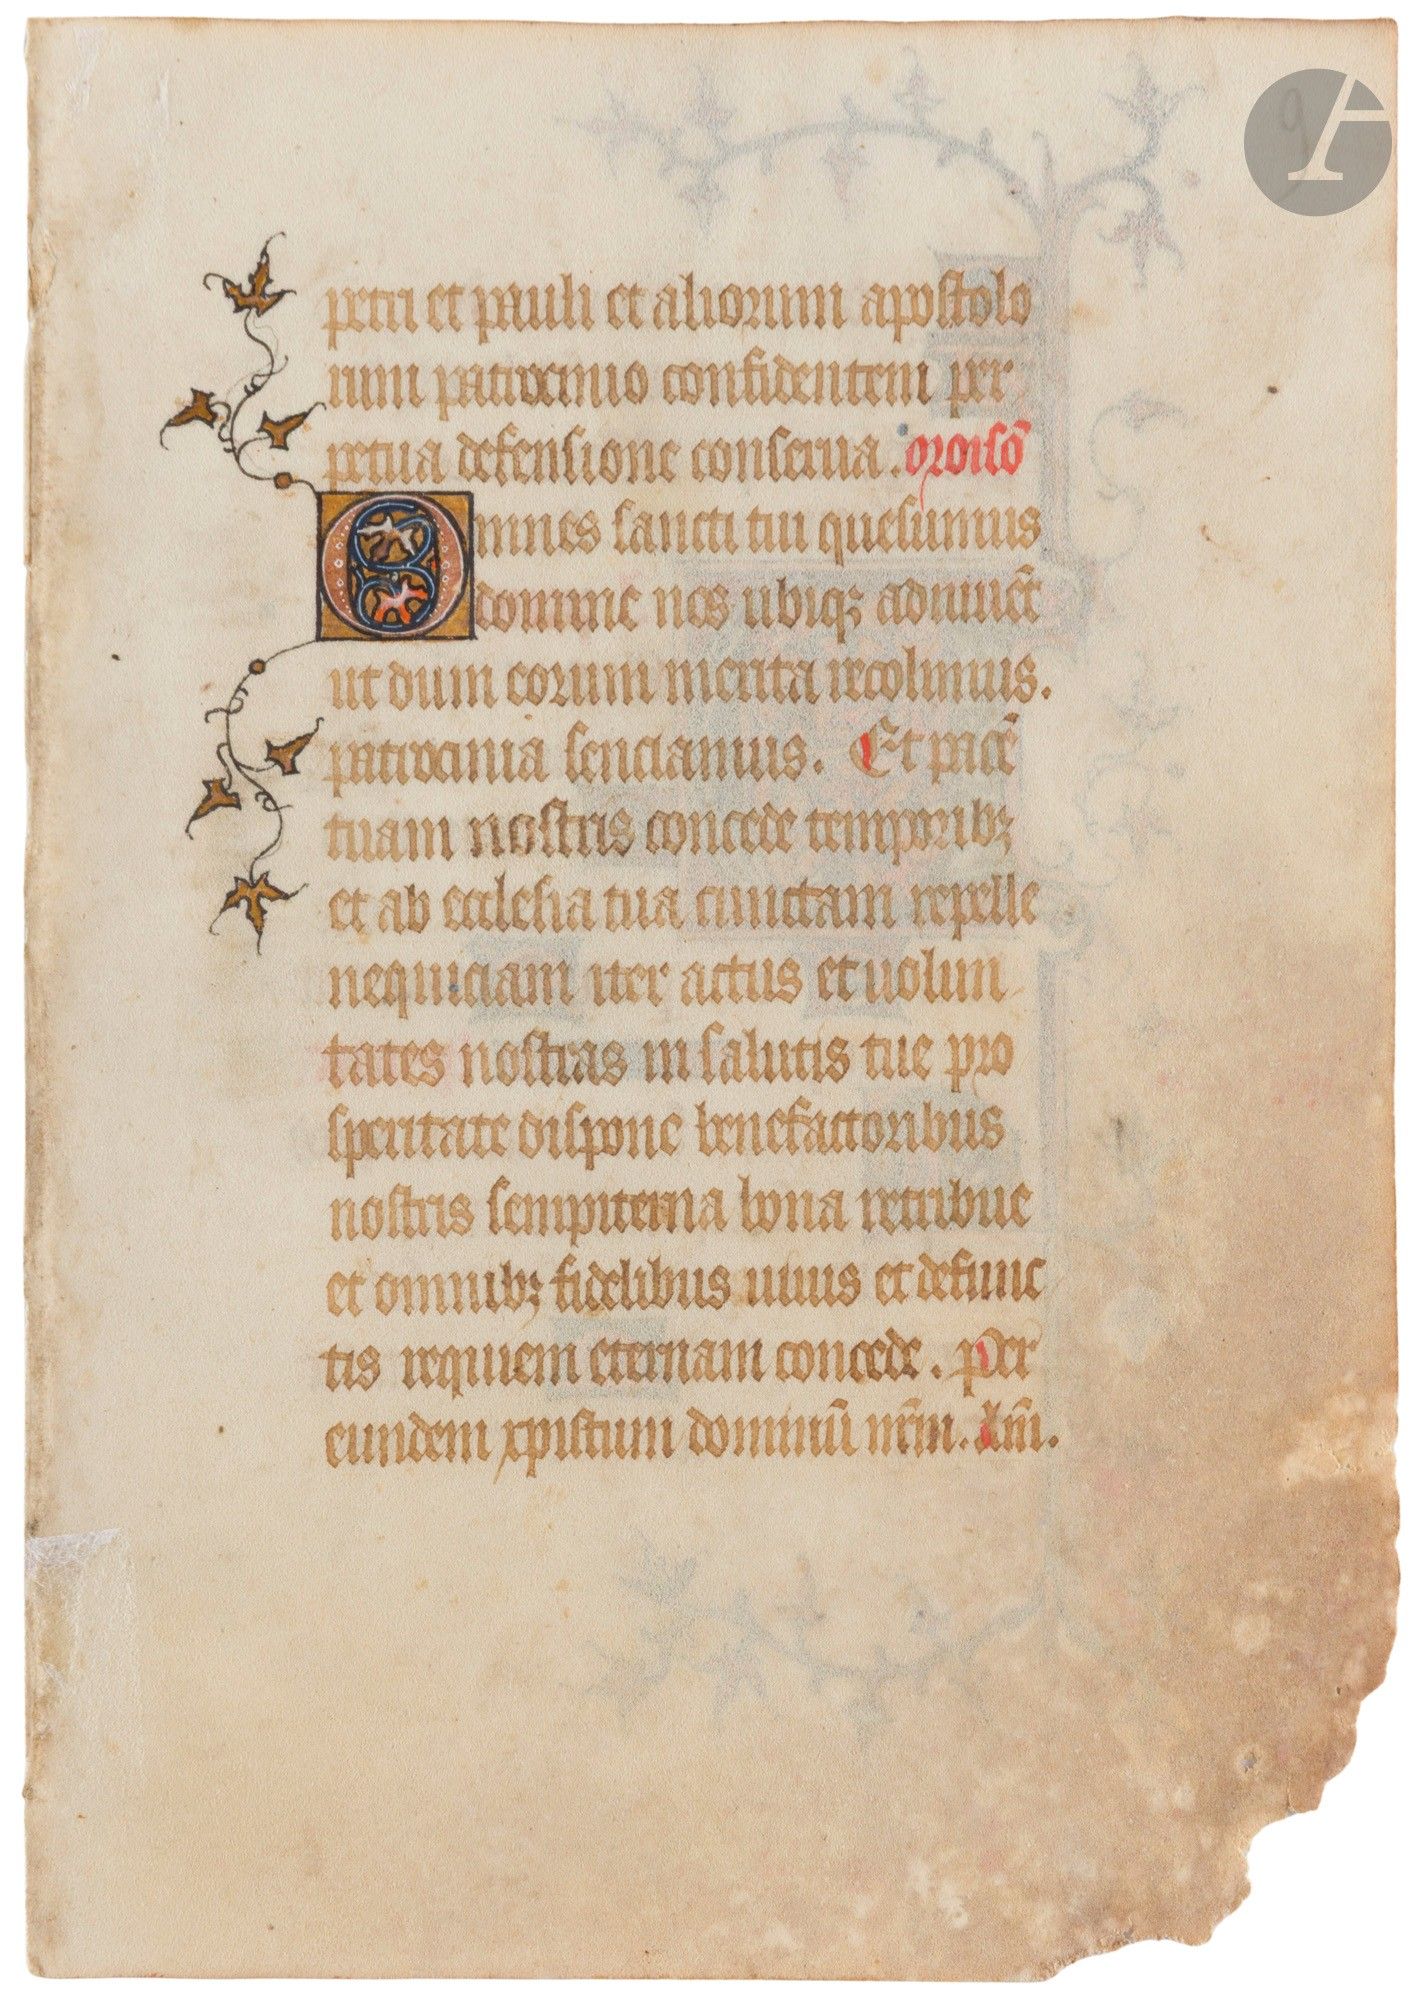 petri et pauli et aliorum apostolo
rum patrocinio confidentem per
petua defensione conserua. oroisō
Omnes sancti tui quesumus
domine nos ubiqꝫ adiuuēt
ut dum eorum merita recolimus.
patrocinia senciamus. Et pacē
tuam nostris concede temporibꝫ
et ab ecclesia tua cunctam repelle
nequiciam iter actus et uolun
tates nostras in salutis tue pro
speritate dispone benefactoribus
nostris sempiterna bona retribue
et omnibꝫ fidelibus uiuis et defunc
tis requiem eternam concede. Per
eundem xpistum dominū nr̄m. Am̄.